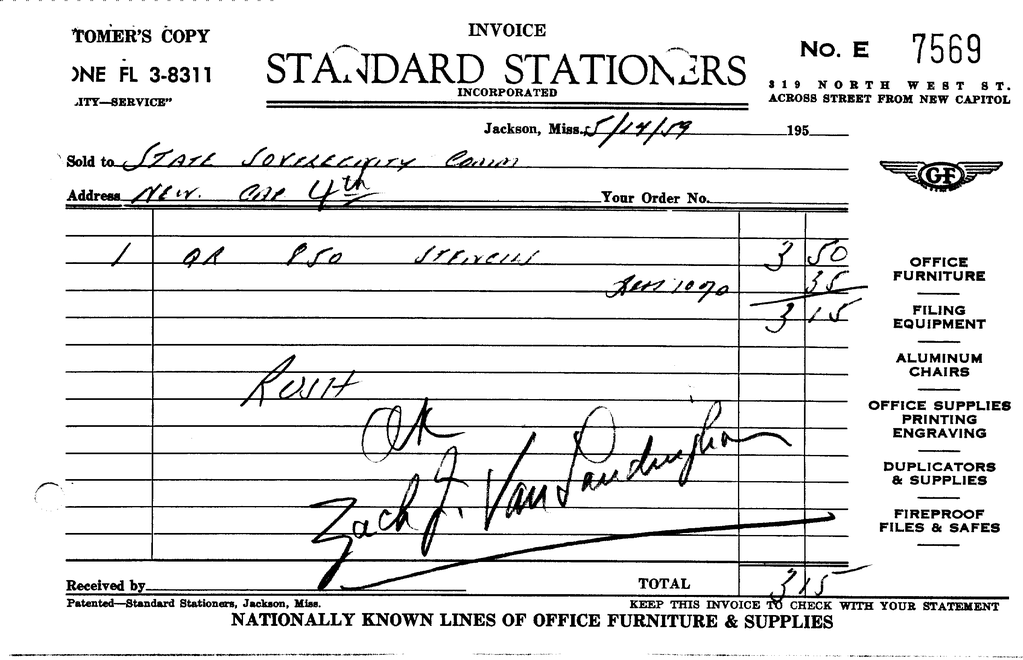 INVOICE
TOMER'S COPY
ONE FL 3-8311
ITY—SERVICE"
STANDARD STATIONERS
INCORPORATED
No. E 7569
319 NORTH WEST ST.
ACROSS STREET FROM NEW CAPITOL
Jackson, Miss. 5/14/59 195
Sold to STATE SOVEREIGNTY Comm
Address NEW. CAP 4th Your Order No.
1 QR 850 STENCILS 3 50
Less 10% 35
3 15
RUSH
OK
Zach J. Van Landingham
GF
OFFICE
FURNITURE
FILING
EQUIPMENT
ALUMINUM
CHAIRS
OFFICE SUPPLIES
PRINTING
ENGRAVING
DUPLICATORS
& SUPPLIES
FIREPROOF
FILES & SAFES
Received by TOTAL 3 15
Patented—Standard Stationers, Jackson, Miss. KEEP THIS INVOICE TO CHECK WITH YOUR STATEMENT
NATIONALLY KNOWN LINES OF OFFICE FURNITURE & SUPPLIES